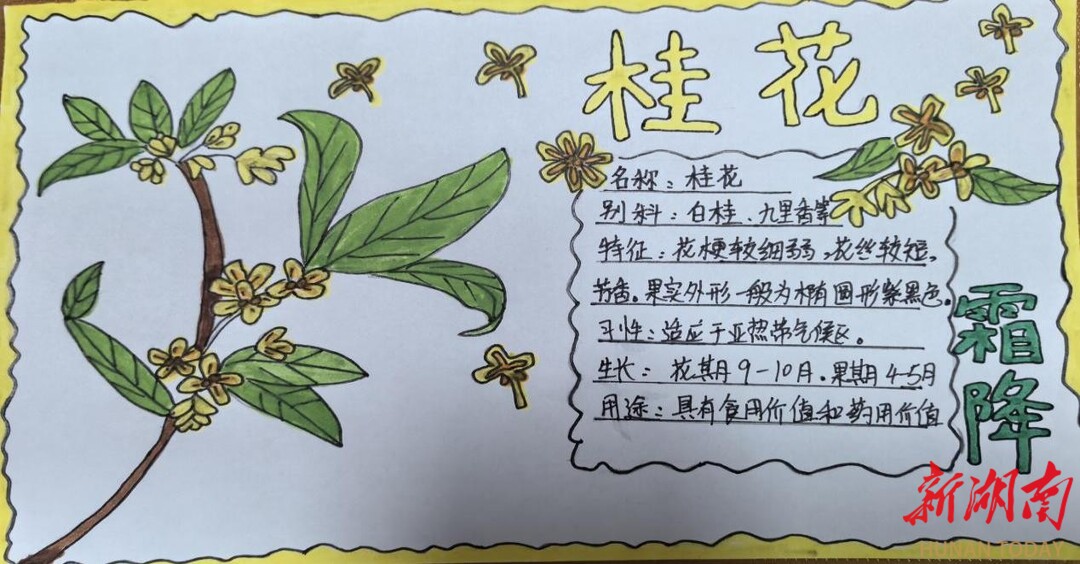 桂花
名称：桂花
别料：白桂、九里香等
特征：花梗较细弱，花丝较短，
芳香。果实外形一般为椭圆形紫黑色。
习性：适应于亚热带气候区。
生长：花其月9-10月。果期4-5月
用途：具有食用价值和药用价值
霜降
新湖南
HUNAN TODAY